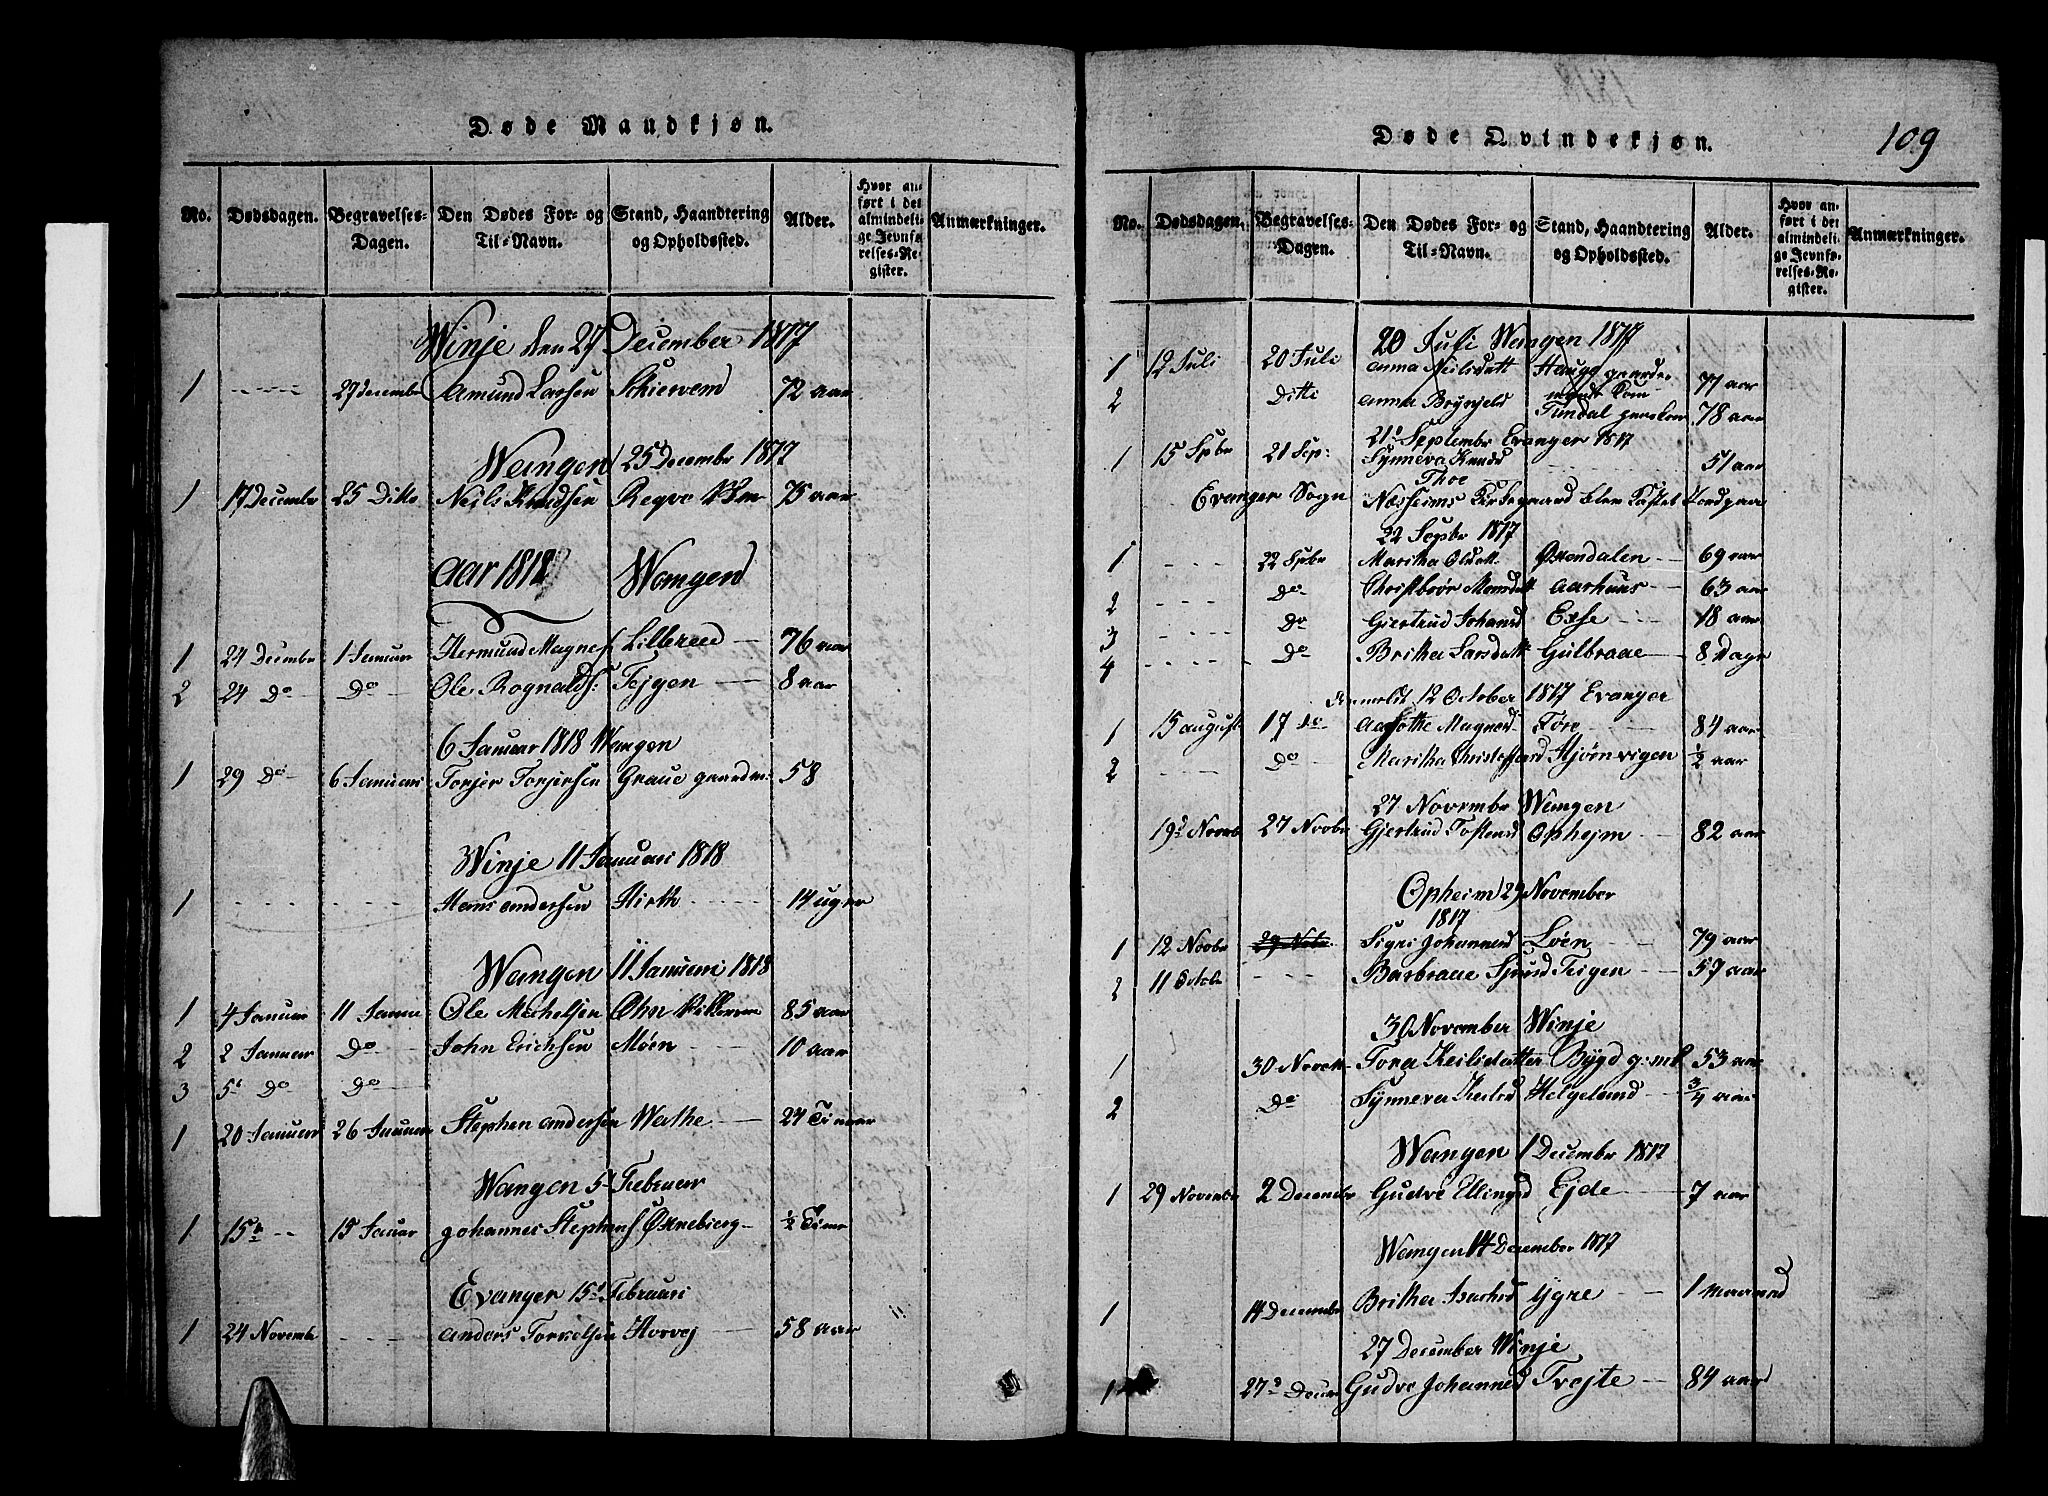 Døde Mandkjøn.
No. Dødsdagen. Begravelses-Dagen. Den Dødes For- og Til-Navn. Stand, Haandtering og Opholdssted. Alder. Hvor anført i det almindelige Jevnførelses-Register. Anmærkninger.
Winje den 27 December 1817
1 ---- 27 December Amund Larsen Skiervem 72 aar
Wangen 25 Decembr 1817
1 17 December 25 Ditto Neils Knudsen 75 aar
Aar 1818 Wangen
1 24 Decembr 1 Januar Hermund Magnes Lilleree 76 aar
2 24 Do Do Ole Rognalds: Tejgen 8 aar
6 Januar 1818 Wangen
1 29 Do 6 Januari Torjer Torjersen Graue gaardm: 58
Winje 11 Januari 1818
1 Mons andersen Hirth 14 uger
Wangen 11 Januari 1818
1 4 Januar 11 Janua Ole Michelsen 85 aar
2 2 Januar Do John Erichsen Møen 10 aar
3 5t Do Do
1 20 Januar 26 Januar Stephen andersen Wethe 24 Timer
Wangen 5 Februar
1 15 -- 15 Januar Johannes Stephens Ørnebierg ½ Time
Evanger 15t Februari
1 24 Novembr anders Torkelsen Horvej 58 aar
109
Døde Qvindekjøn.
No. Dødsdagen. Begravelses-Dagen. Den Dødes For- og Til-Navn. Stand, Haandtering og Opholdssted. Alder. Hvor anført i det almindelige Jevnførelses-Register. Anmærkninger.
20 Juli Wangen 1817
1 12 Juli 20 Juli anna Neilsdatt Hauge gaardmands Kone 77 aar
2 Ditti anna Brynjels Tundal 78 aar
21 Septembr Evanger 1817
1 15 Spbr 21 Sep: Synneva Knuds Thoe 51 aar
Evanger Sogn Næsheims Kirkegaard
22 Sepbr 1817
1 22 Spbr Maritha Olsdatt 69 aar
2 ---- Do Christbrør Monsdatt Aarhuus 63 aar
3 ---- Do Giertrud Johansd Exse 18 aar
4 ---- Do Britha Larsdatt Gilbraae 8 Dage
12 October 1817 Evanger
1 15 august 17 do Magnesd Tøre 84 aar
2 ---- Do Maritha Stjørnvigen ½ aar
27 Novembr Wangen
19d Novbr 27 Novbr Gjertrud Tostensd Opheim 82 aar
Opheim 29 November
1817
1 12 Novbr 29 Novbr Signi Johannesd Løen 79 aar
2 11 Octobr ---- Barbraae Sjursd Teigen 57 aar
30 November Winje
1 30 Novembr Tona Keilsdatter Bygd 53 aar
2 Do Synneva Keilsd Helgeland ¾ aar
Wangen 1 December 1817
1 29 Novembr 2 Decembr Gudve Ellingsd Ejde 7 aar
Wangen 14 December 1817
1 14 Decembr Britha Isachsd Ygre 1 Maaned
27 December Winje
1 27d Decem Gudve Johannesd Tvejte 84 aar